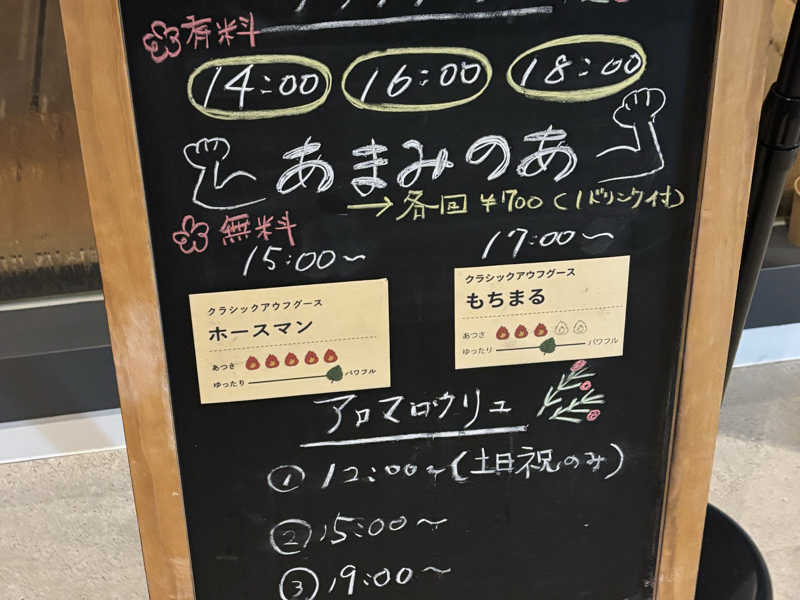 有料
14:00 16:00 18:00
あまみのあ
→各回 ¥700(1ドリンク付)
無料
15:00〜
17:00〜
クラシックアウフグース
ホースマン
あつさ
ゆったり パワフル
クラシックアウフグース
もちまる
あつさ
ゆったり パワフル
アロマロウリュ
① 12:00〜(土日祝のみ)
② 15:00〜
③ 19:00〜